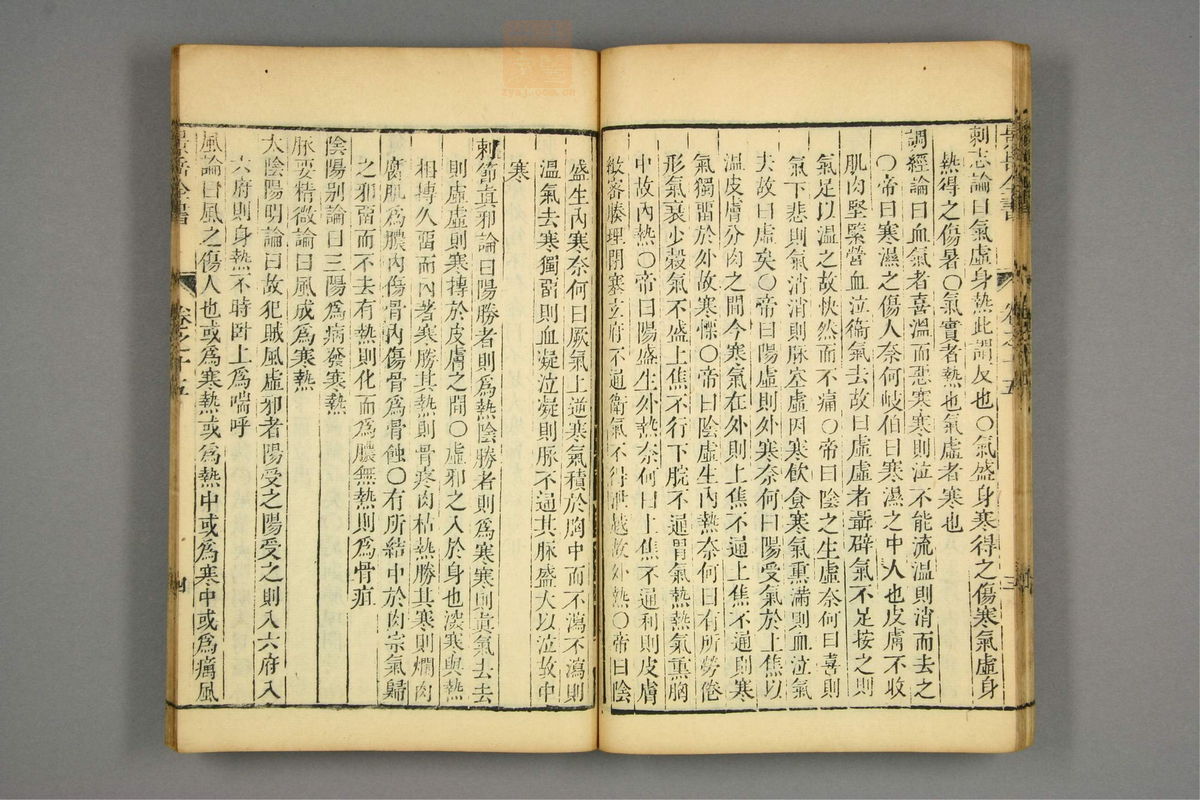 刺志論曰氣虛身熱此謂反也○氣盛身寒得之傷寒氣虛身
熱得之傷暑○氣實者熱也氣虛者寒也
調經論曰血氣者喜溫而惡寒寒則泣不能流溫則消而去之
○帝曰寒濕之傷人奈何岐伯曰寒濕之中人也皮膚不收
肌肉堅緊營血泣衞氣去故曰虛虛者聶辟氣不足按之則
氣足以溫之故快然而不痛○帝曰陰之生虛奈何曰喜則
氣下悲則氣消消則脉空虛因寒飲食寒氣熏滿則血泣氣
去故曰虛矣○帝曰陽虛則外寒奈何曰陽受氣於上焦以
溫皮膚分肉之間今寒氣在外則上焦不通上焦不通則寒
氣獨畱於外故寒慄○帝曰陰虛生內熱奈何曰有所勞倦
形氣衰少穀氣不盛上焦不行下脘不通胃氣熱熱氣熏胸
中故內熱○帝曰陽盛生外熱奈何曰上焦不通利則皮膚
緻密腠理閉塞玄府不通衞氣不得泄越故外熱○帝曰陰
盛生內寒奈何曰厥氣上逆寒氣積於胸中而不瀉不瀉則
溫氣去寒獨畱則血凝泣凝則脉不通其脉盛大以泣故中
寒
刺節眞邪論曰陽勝者則爲熱陰勝者則爲寒寒則眞氣去去
則虛虛則寒搏於皮膚之間○虛邪之入於身也深寒與熱
相搏久畱而內著寒勝其熱則骨疼肉枯熱勝其寒則爛肉
腐肌爲膿內傷骨內傷骨爲骨蝕○有所結中於肉宗氣歸
之邪畱而不去有熱則化而爲膿無熱則爲骨疽
陰陽别論曰三陽爲病發寒熱
脉要精微論曰風成爲寒熱
太陰陽明論曰故犯賊風虛邪者陽受之陽受之則入六府入
六府則身熱不時卧上爲喘呼
風論曰風之傷人也或爲寒熱或爲熱中或爲寒中或爲癘風
景岳全書
卷之十五
三
四